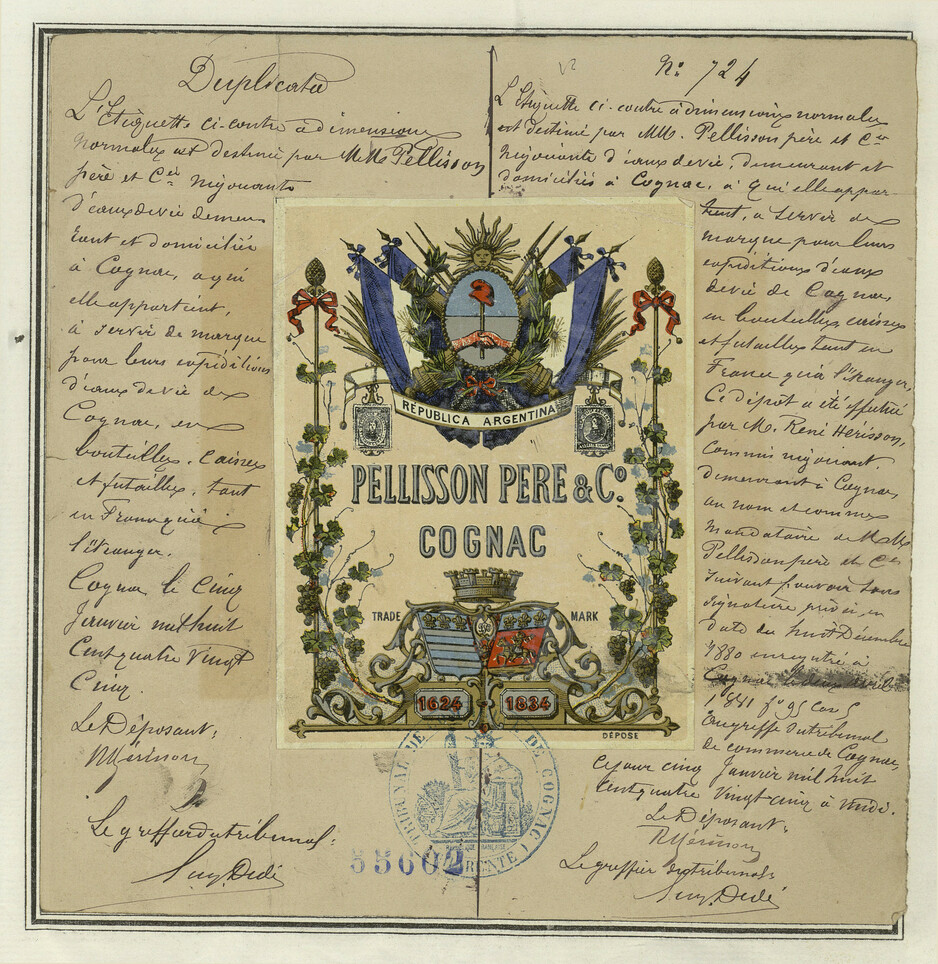 Duplicata
L'Etiquette ci-contre à dimensions
normales est destiné par M.Ms Pellisson
père et Cie négociants
d'eaux de vie demeu
rant et domiciliés
à Cognac, a qui
elle appartient,
à servir de marque
pour leurs expéditions
d'eaux de vie de
Cognac, en
bouteilles, caisses
et futailles, tant
en France qu'à
l'étranger.
Cognac le cinq
Janvier mil huit
Cent quatre vingt
Cinq.
Le Déposant,
R Hérisson
Le greffier du tribunal.
Dedé
No 724
L'Etiquette ci-contre à dimensions normales
est destiné par MM. Pellisson père et Cie
négociants d'eaux de vie, demeurant et
domiciliés à Cognac, à qui elle appar-
tient, a servir de
marque pour leurs
expéditions d'eaux
de vie de Cognac,
en bouteilles caisses
et futailles tant en
France qu'à l'étranger,
Ce dépôt a été effectué
par M. René Hérisson,
Commis négociant,
demeurant à Cognac,
au nom et comme
mandataire de M.Ms
Pellisson père et Cie
suivant pouvoir sous
signature privée en
date du huit Décembre
1880 enregistré à
Cognac le deux
1881 fo 95 Cas 5
au greffe du tribunal
de commerce de Cognac,
Ce jour cinq Janvier mil huit
Cent quatre Vingt cinq à
Le Déposant,
R Hérisson
Le greffier du tribunal
Dedé
REPUBLICA ARGENTINA
PELLISSON PERE & Co.
COGNAC
TRADE MARK
1624 1834
DÉPOSÉ
TRIBUNAL DE DE COGNAC
55602